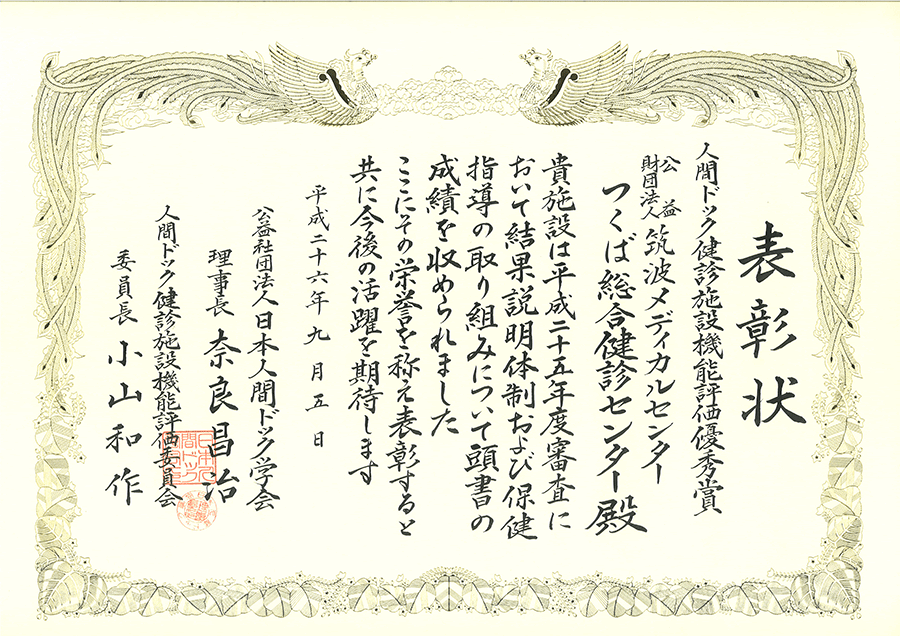 表彰状
人間ドック健診施設機能評価優秀賞
公益財団法人 筑波メディカルセンター
つくば総合健診センター殿
貴施設は平成二十五年度審査に
おいて結果説明体制および保健
指導の取り組みについて頭書の
成績を収められました
ここにその栄誉を称え表彰すると
共に今後の活躍を期待します
平成二十六年九月五日
公益社団法人日本人間ドック学会
理事長 奈良昌治
人間ドック健診施設機能評価委員会
委員長 小山和作